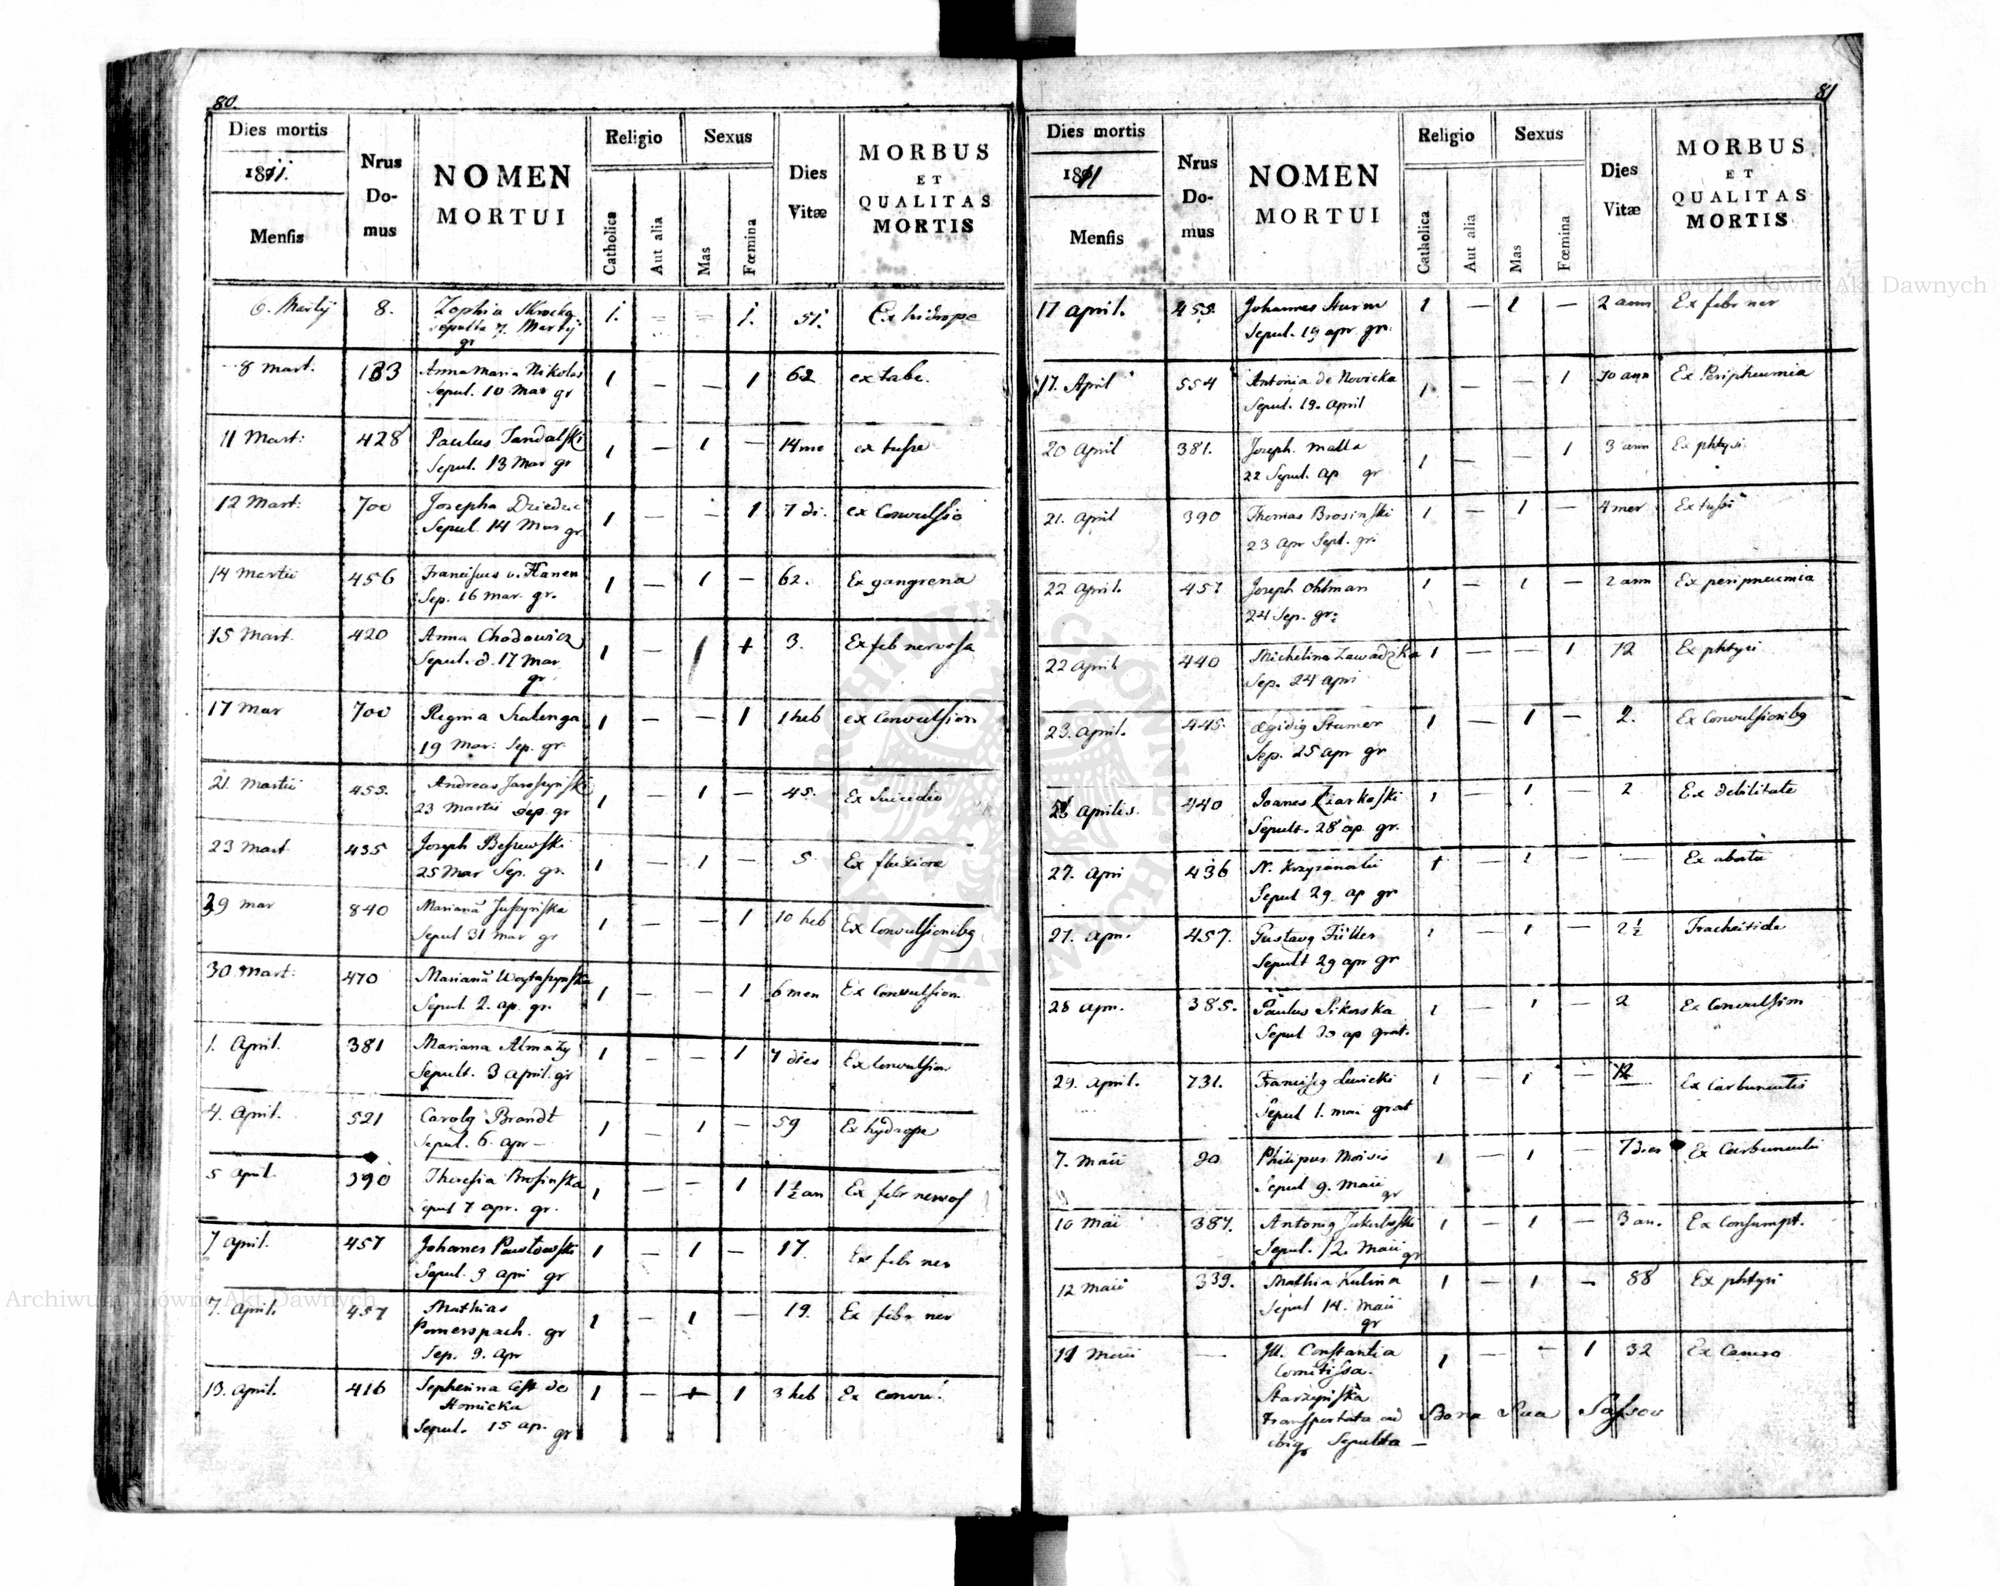 80.
Dies mortis
1811.
Mensis
Nrus
Do-
mus
NOMEN
MORTUI
Religio
Catholica
Aut alia
Sexus
Mas
Fœmina
Dies
Vitæ
MORBUS
ET
QUALITAS
MORTIS
6. Martij 8. Zophia 1. – – 1. 51. Ex hidrope
sepulta 7. Martij
gr
8 Mart. 133 Anna Maria Nikolas 1 – – 1 62 ex tabe.
Sepul. 10 Mar gr
11 Mart: 428 Paulus 1 – 1 – 14 mo ex tusse
Sepul. 13 Mar gr
12 Mart: 700 Josepha Dziedzic 1 – – 1 7 di. ex Convulsio
Sepul. 14 Mar gr
14 Martii 456 Franciscus v. Hanen 1 – 1 – 62. Ex gangrena
Sep. 16 Mar. gr.
15 Mart. 420 Anna Chodowicz 1 – 1 + 3. Ex feb nervosa
Sepul. d. 17 Mar
gr.
17 Mar 700 Regina 1 – – 1 1 heb ex Convulsion
19 Mar: Sep. gr.
21. Martii 455. Andreas Jaroszynski 1 – 1 – 45. Ex Suicidio
23 Martii Sep. gr
23 Mart 435 Joseph 1 – 1 – 5 Ex fluxiore
25 Mar Sep. gr.
29 Mar 840 Marianã 1 – – 1 10 heb Ex Convulsionibg
Sepul 31 Mar gr
30. Mart: 470 Marianã 1 – – 1 6 men Ex Convulsion
Sepul. 2. ap. gr.
1. April. 381 Mariana Almazy 1 – – 1 7 dies Ex Convulsion
Sepult. 3 April. gr
4. April. 521 Carolg Brandt 1 – 1 – 59 Ex hydrope
Sepul. 6. apr –
5 April. 390 Theresia Brosinska 1 – – 1 1 1/2 an Ex febr nervos
Sepul 7 apr. gr.
7 April. 457 Johanes Pawlowski 1 – 1 – 17. Ex febr ner
Sepul. 9 apri gr
7. April. 457 Mathias 1 – 1 – 19. Ex febr ner
Pomerspach. gr
Sep. 9. apr
13. April. 416 1 – + 1 3 heb Ex convul.
Sepul. 15 ap. gr
81
Dies mortis
1811
Mensis
Nrus
Do-
mus
NOMEN
MORTUI
Religio
Catholica
Aut alia
Sexus
Mas
Fœmina
Dies
Vitæ
MORBUS
ET
QUALITAS
MORTIS
17 April. 453. Johannes Sturm 1 – 1 – 2 ann Ex febr ner
Sepul. 19 apr gr.
17. April 554 Antonia de Nowicka 1 – – 1 70 ann Ex Peripneumia
Sepul. 19. April
20 April 381. Joseph. Malla 1 – – 1 3 ann Ex phtysi
22 Sepul. Ap gr
21. April 390 Thomas Brosinski 1 – 1 – 4 mer Ex tussi
23 Apr Sept. gr.
22 April. 457 Joseph Ohlman 1 – 1 – 2 ann Ex peripneumia
24 Sep. gr.
22 April 440 Michelina Zawadzka 1 – – 1 12 Ex phtysi
Sep. 24 Apri
23. April. 445. Ægidig Stumer 1 – 1 – 2. Ex Convulsionibg
Sep. 25 Apr gr
Aprilis. 440 Joanes Czarkoski 1 – 1 – 2 Ex debilitate
Sepult. 28 ap. gr.
27. Apri 436 N. 1 – 1 – – Ex abortu
Sepul 29. ap gr
27. Apr. 457. Gustavg Füller 1 – 1 – 2 1/2 Tracheitide
Sepult 29 apr gr
28 Apr. 385. Paulus Sikorska 1 – 1 – 2 Ex Convulsion
Sepul 30 ap grat.
29. April. 731. Francisg Lewicki 1 – 1 – 12 Ex Carbunculis
Sepul 1. mai grat
7. Maii 20 Philipus Moisis 1 – 1 – 7 dies Ex Carbunculi
Sepul 9. Maii
gr
10 Maii 387. Antonig Jakubuski 1 – 1 – 3 an. Ex Consumpt.
Sepul. 12. Maii
gr
12 Maii 339. Mathia Kulina 1 – 1 – 88 Ex phtysi
Sepul 14. Maii
gr
11 Maii – Ill. Constantia 1 – – 1 32 Ex Cancro
Comitissa.
Starzynska
Transportata ad Bona Sua Sassow
ibig Sepulta –
Archiwum Główne Akt Dawnych
Archiwum Główne Akt Dawnych
ARCHIWUM GŁÓWNE AKT DAWNYCH